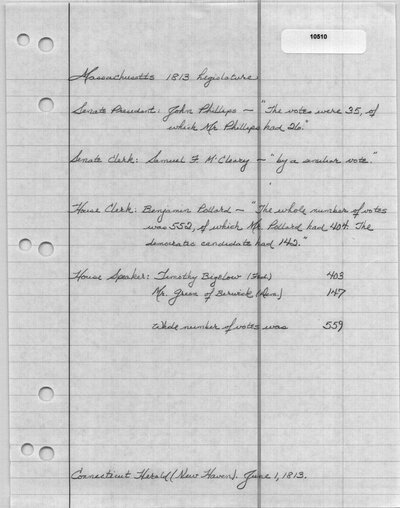 10510
Massachusetts 1813 Legislature
Senate President: John Phillips — "The votes were 35, of
which Mr. Phillips had 26."
Senate Clerk: Samuel F. McCleary — "by a similar vote."
House Clerk: Benjamin Pollard — "The whole number of votes
was 552, of which Mr. Pollard had 404. The
democratic candidate had 142."
House Speaker: Timothy Bigelow (Fed.) 403
Mr. Green of Berwick (Rem.) 147
Whole number of votes was 559
Connecticut Herald (New Haven). June 1, 1813.